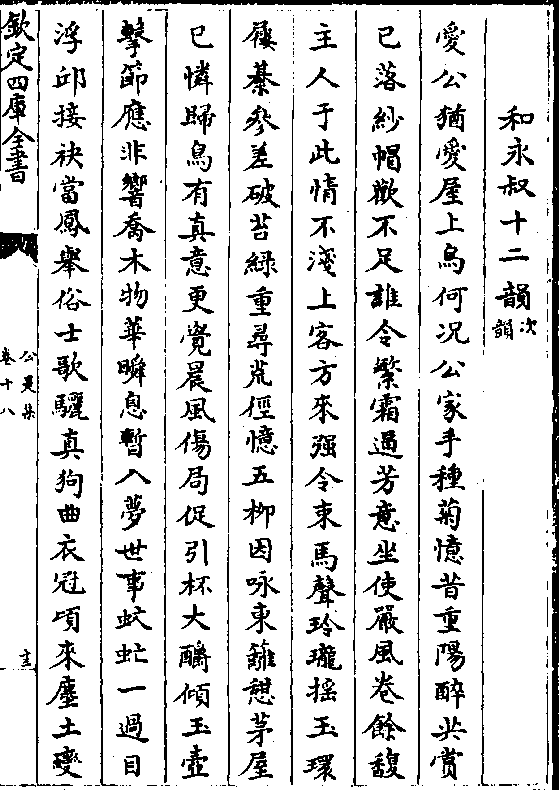 和永叔十二韻次韻
愛公猶愛屋上烏何况公家手種菊憶昔重陽醉共賞
已落紗帽歡不足誰令繁霜過芳意坐使嚴風卷餘馥
主人于此情不淺上客方來强令束馬聲玲瓏揺玉環
屐綦參差破苔綠重尋荒徑憶五柳因咏東籬憇茅屋
已憐歸鳥有真意更覺晨風傷局促引杯大釂傾玉壺
擊節應非響喬木物華瞬息暫入夢世事蚊虻一過目
浮邱接袂當鳳舉俗士歌驪真狗曲衣冠頃來塵土變
欽定四庫全書
公是集
卷十八